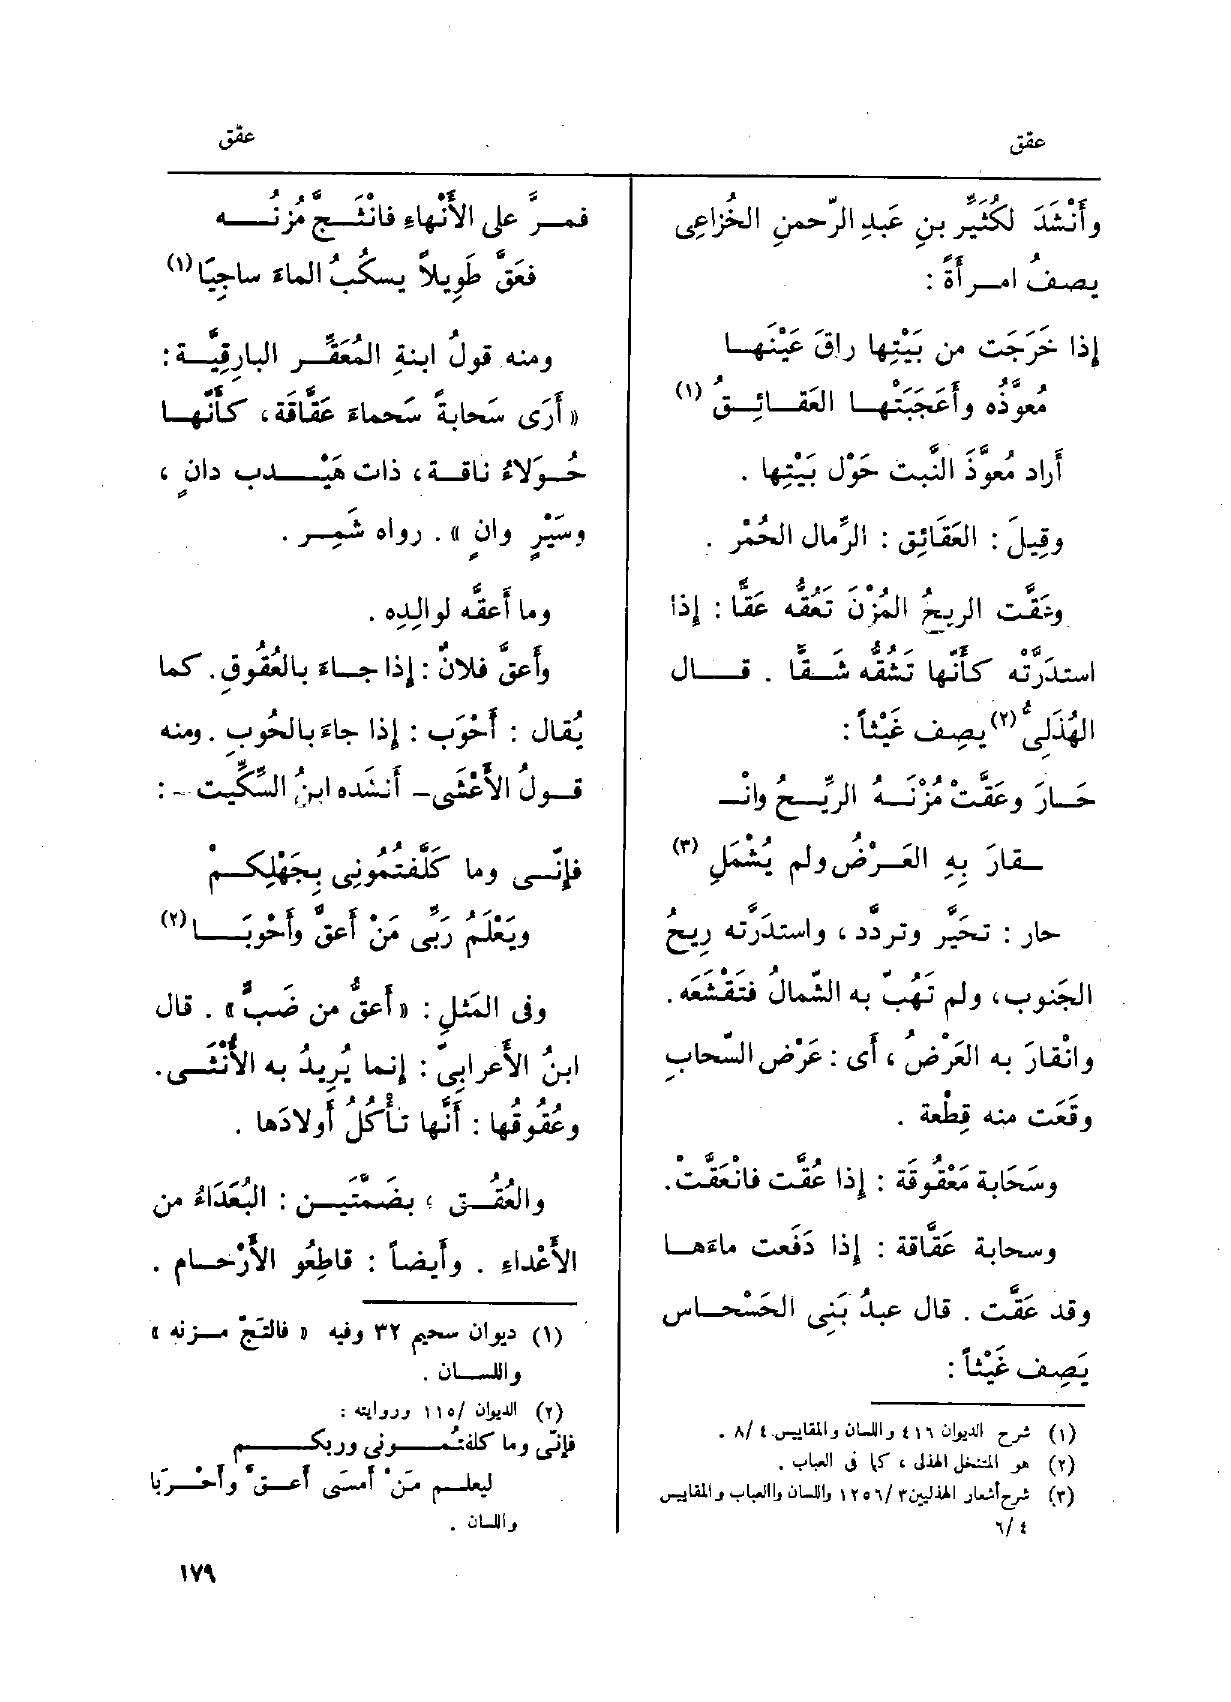 عقق
عقق
وأَنْشَدَ لكُثَيِّر بنِ عَبدِ الرّحمنِ الخُزاعِى
يصفُ امرأَةً :
إِذا خَرَجَت من بَيْتِها راقَ عَيْنَهـا
مُعوَّذُه وأَعجَبَتْهـا العَقـائِـقُ (١)
أَراد مُعوَّذَ النَّبت حَوْل بَيْتِها .
وقِيلَ : العَقَائِق : الرِّمال الحُمْر .
وعَقَّت الريحُ المُزْنَ تَعُقُّه عَقًّا : إِذا
استدَرَّتْه كأَنّها تَشُقُّه شَـقًّا . قـال
الهُذَلِىُّ (٢) يصِف غَيْثاً :
حَـارَ وعَقَّتْ مُزْنَـهُ الرِّيـحُ وانْـ
ـقارَ بِهِ العَـرْضُ ولم يُشْمَلِ (٣)
حار : تحَيَّر وتردَّد ، واستدَرَّته رِيحُ
الجَنوب، ولم تَهُبّ به الشّمالُ فتَقْشَعَه.
وانْقارَ به العَرْضُ ، أَى : عَرْض السّحابِ
وقَعَت منه قِطْعة .
وسَحَابة مَعْقُوقَة : إِذا عُقَّت فانْعَقَّتْ.
وسحابة عَقَّاقة : إِذا دَفَعت ماءَهـا
وقد عَقَّت . قال عبدُ بَنِى الحَسْحاس
يَصِف غَيْثاً :
(١) شرح الديوان ٤١٦ واللسان والمقاييس ٤ /٨ .
(٢) هو المتنخل الهذلى ، كما فى العباب .
(٣) شرح أشعار الهذليين ٣/ ١٢٥٦ واللسان واالعباب والمقاييس
٤ /٦
فمـرَّ على الأَنْهاءِ فانْثَـجَّ مُزنُـه
فعَقَّ طَوِيلاً يسكُبُ الماءَ ساجِيَا (١)
ومنه قولُ ابنةِ المُعَقِّـر البارِقِيَّـة :
« أَرَى سَحابةً سَحماءَ عَقَّاقة ، كأَنّهـا
حُـوَلاءُ ناقـة ، ذات هَيْـدب دانٍ ،
وسَيْرٍ وانٍ » . رواه شَمِـر .
وما أَعقَّه لوالِدِه .
وأَعقَّ فلانٌ : إِذا جـاءَ بالعُقُوقِ. كما
يُقال : أَحْوَب : إِذا جاءَ بالحُوبِ . ومنه
قـولُ الأَعْشَى ــ أَنشَده ابنُ السِّكِّيت ــ :
فإِنّـى وما كَلَّفتُمُونِى بِجَهْلِكـمْ
ويَعْلَمُ رَبِّى مَنْ أَعقَّ وأَحْوبَـا (٢)
وفى المَثلِ : « أَعقُّ من ضَبٍّ » . قال
ابنُ الأَعرابِىّ : إِنما يُرِيدُ به الأُنْثَـى.
وعُقُوقُها : أَنَّها تَأْكُلُ أَولادَها .
والعُقُـق ، بضَمَّتَيـن : البُعَدَاءُ من
الأَعْداءِ . وأَيضاً : قاطِعُو الأَرْحـام .
(١) ديوان سحيم ٣٢ وفيه « فالتَجّ مـزنه »
واللسان .
(٢) الديوان /١١٥ وروايته :
فإنّى وما كلفتُمُـونى وربكـم
ليعلـم مَنْ أمسَى أعـقَّ وأحْـرَبا
واللسان .
١٧٩